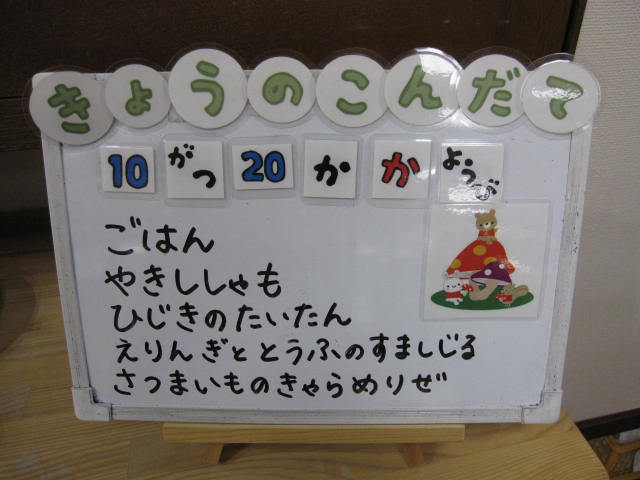 きょうのこんだて
10 がつ 20 か か ようび
ごはん
やきししゃも
ひじきのたいたん
えりんぎととうふのすましじる
さつまいものきゃらめりぜ